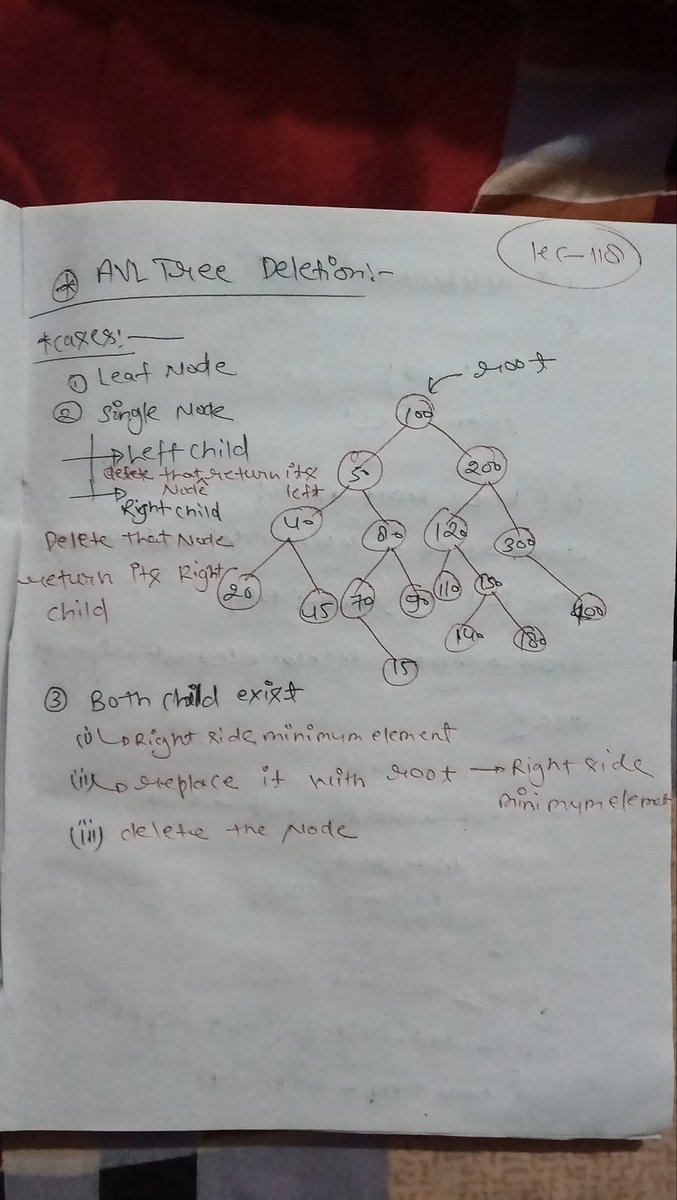 Lec-118
* AVL Tree Deletion:-
*Cases:-
① Leaf Node
② Single Node
Left child
delete that return its
Node left
Right child
Delete that Node
return its Right
child
root
100
50 200
40 80 120 300
20 45 70 90 110 150 400
140 180
75
③ Both child exist
(i) Right side minimum element
(ii) replace it with root → Right side
minimum element
(iii) delete the Node